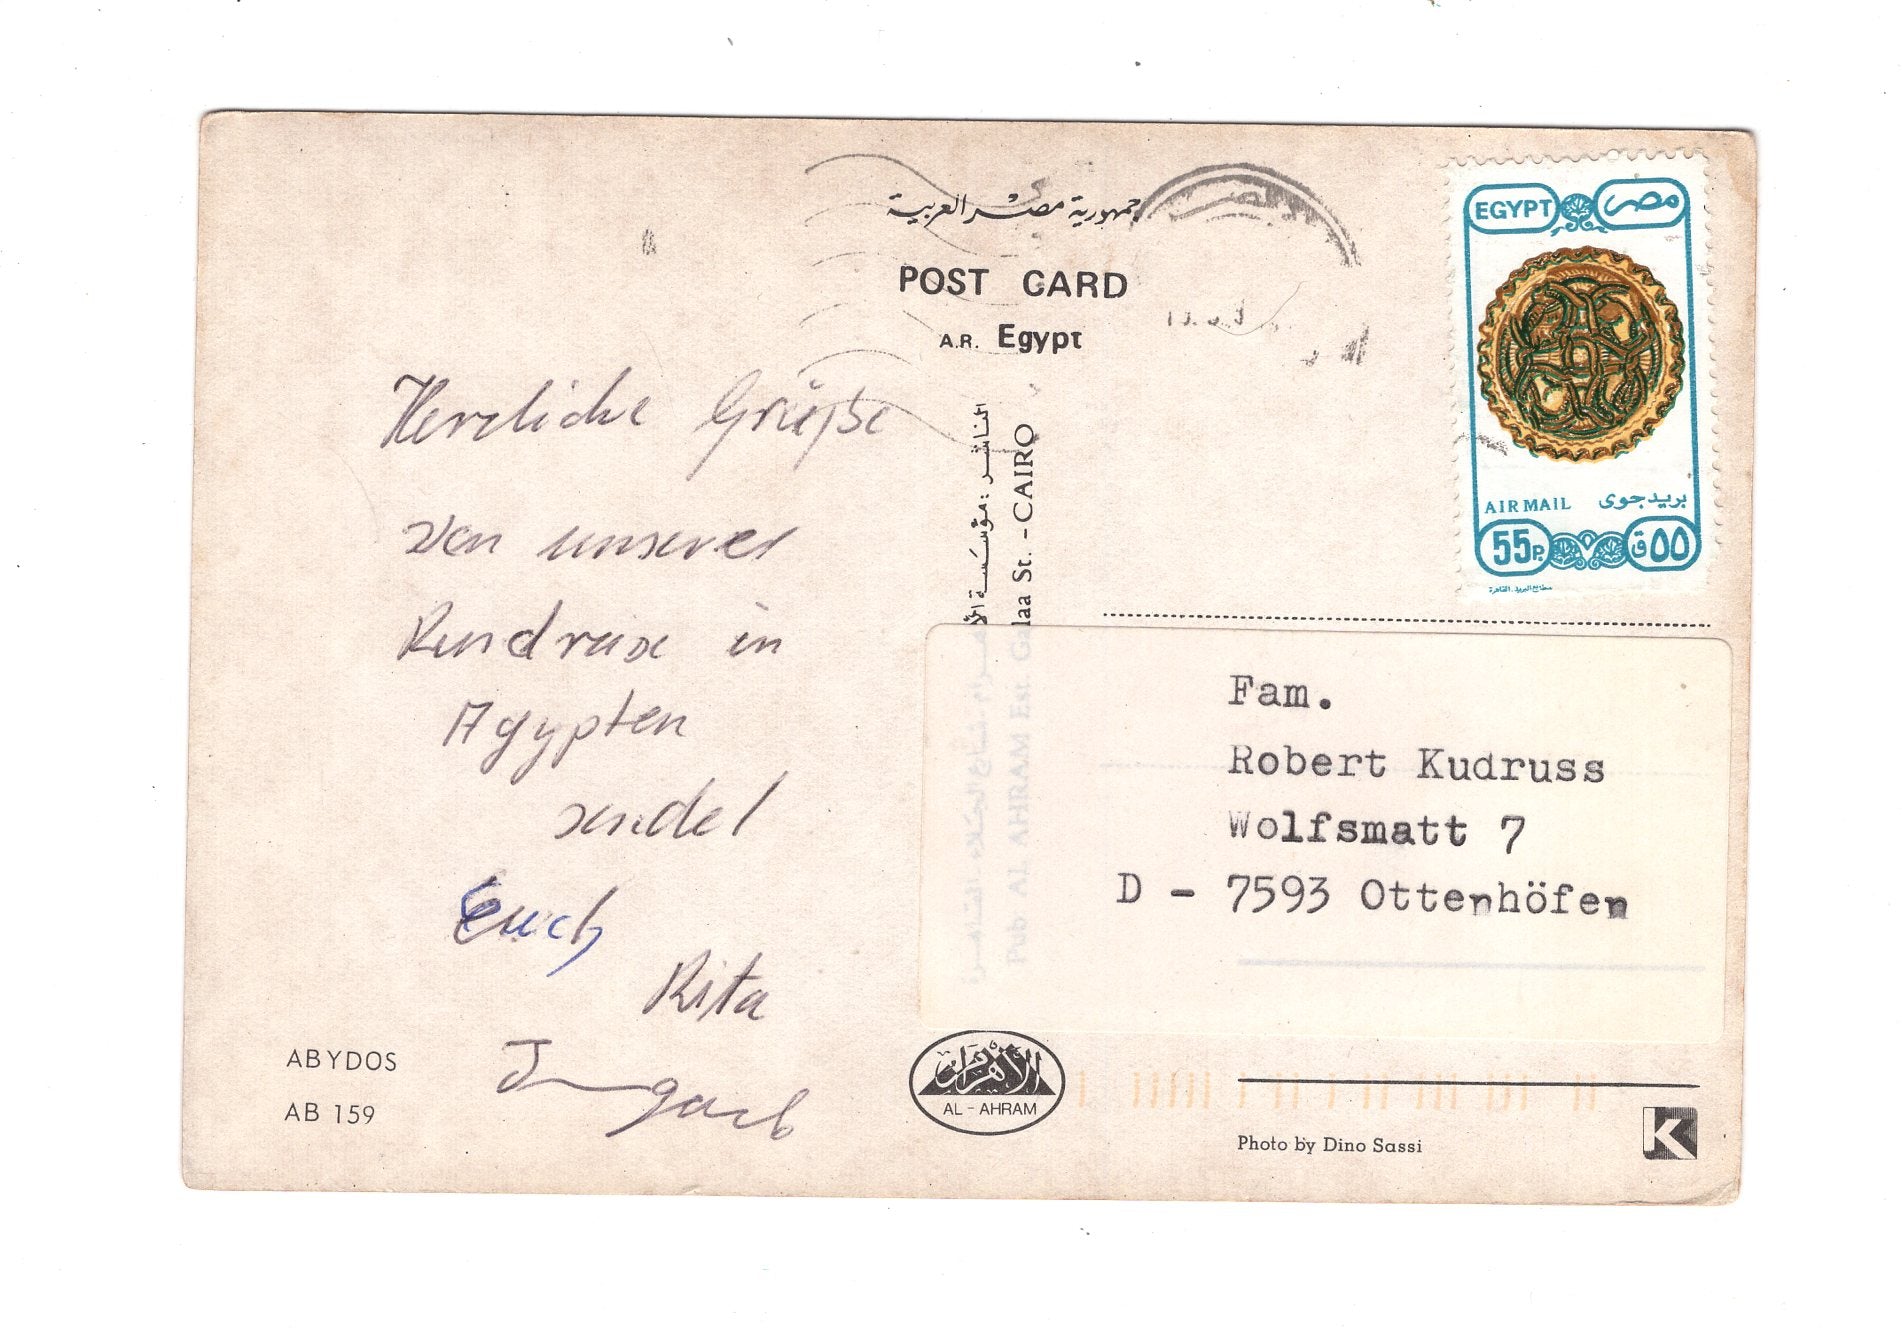 جمهورية مصر العربية
POST CARD
A.R. Egypt
Herzliche Grüße
von unserer
Rundreise in
Ägypten
sendet
Euch
Rita
Irmgard
ABYDOS
AB 159
الناشر : مؤسسة الأهرام شارع الجلاء القاهرة
Pub AL AHRAM Est. Galaa St. - CAIRO
EGYPT مصر
AIR MAIL بريد جوى
55P. ٥٥ق
مطابع البريد. القاهرة
Fam.
Robert Kudruss
Wolfsmatt 7
D - 7593 Ottenhöfen
الأهرام
AL - AHRAM
Photo by Dino Sassi
K